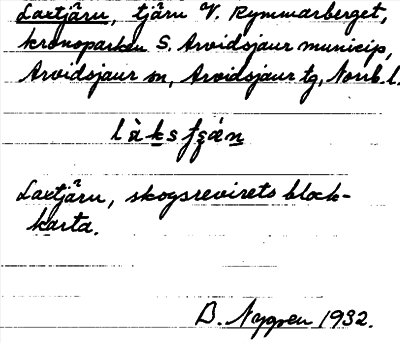 Laxtjärn, tjärn V. Rymmarberget,
kronoparken S. Arvidsjaur municip,
Arvidsjaur sn, Arvidsjaur tg, Norrb. l.
Laxtjärn, skogsrevirets block-
karta.
B. Nygren 1932.